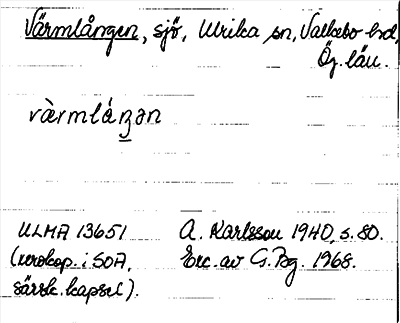 Värmlången, sjö, Ulrika sn, Valkebo hd,
Ög. län.
vàrmláŋən
ULMA 13651
A. Karlsson 1940, s. 80.
(xerokop. i SOA,
Exc. av G. Bg. 1968.
särsk. kapsel).